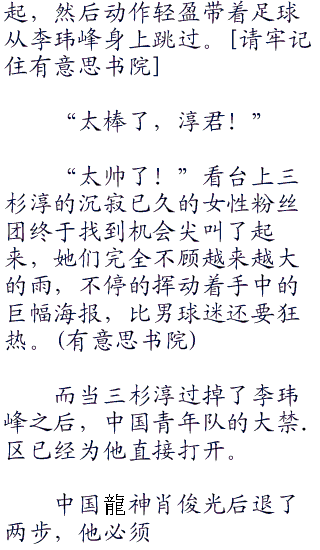 起，然后动作轻盈带着足球
从李玮峰身上跳过。[请牢记
住有意思书院]
“太棒了，淳君！”
“太帅了！”看台上三
杉淳的沉寂已久的女性粉丝
团终于找到机会尖叫了起
来，她们完全不顾越来越大
的雨，不停的挥动着手中的
巨幅海报，比男球迷还要狂
热。(有意思书院)
而当三杉淳过掉了李玮
峰之后，中国青年队的大禁.
区已经为他直接打开。
中国龍神肖俊光后退了
两步，他必须